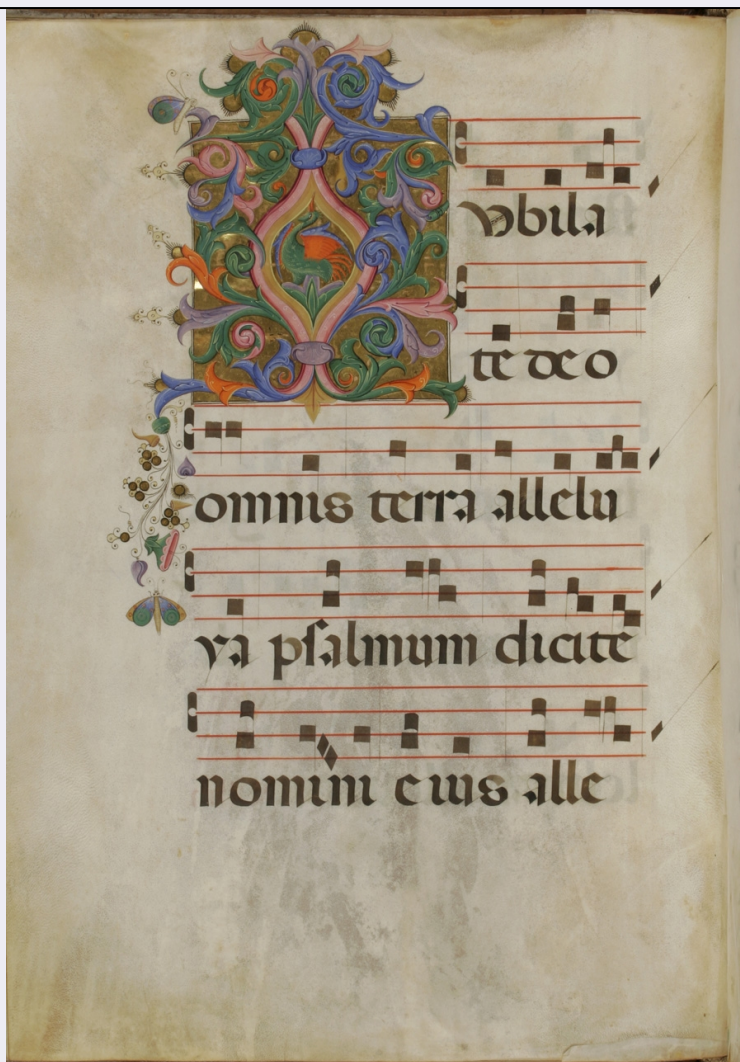 Vbila
te deo
omnis terra allelu
ya psalmum dicite
nomini eius alle